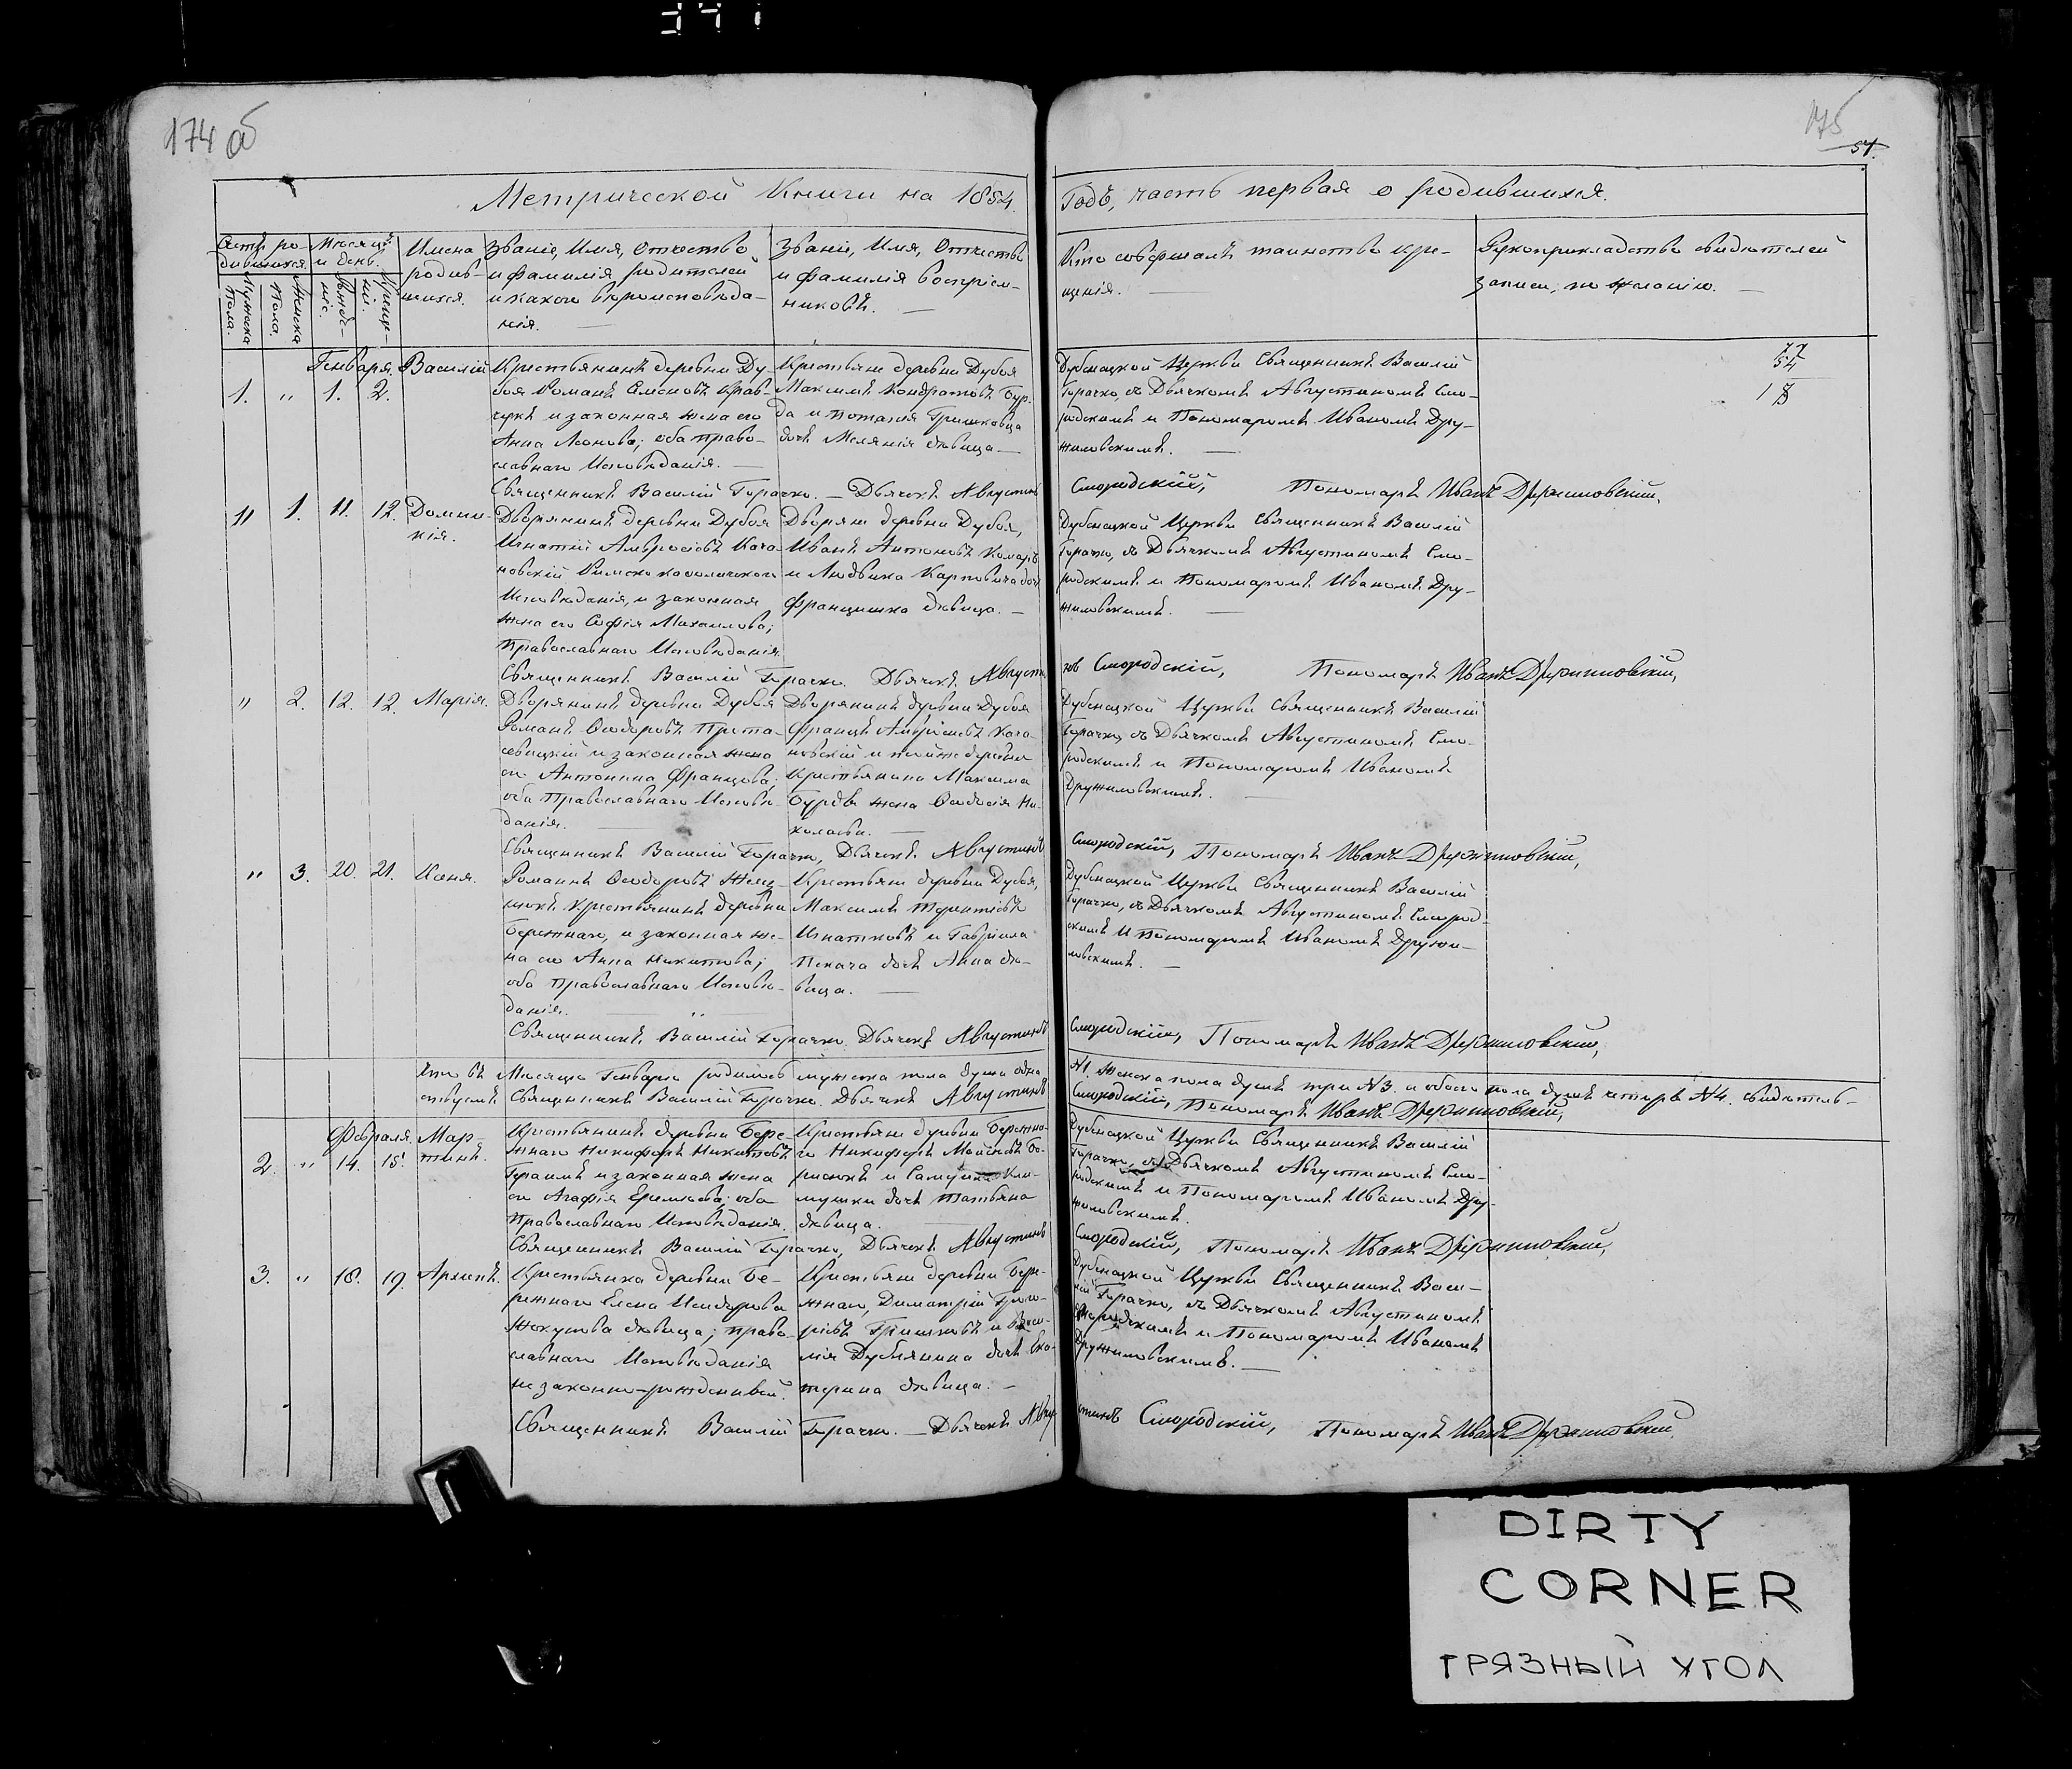 174 об
175
51.
Метрической Книги на 1854.
Годъ, часть первая о родившихся.
Счетъ ро-
дившихся.
Мужеска
пола.
Женска
пола.
Месяцъ
и день.
Рожде-
нія.
Креще-
нія.
Имена
родив-
шихся.
Званіе, Имя, Отчество
и фамилія родителей
и какого вѣроисповѣда-
нія. —
Званіе, Имя, Отчество
и фамилія воспріем-
никовъ. —
Кто совершалъ таинство кре-
щенія. —
Рукоприкладство свидѣтелей
записи, по желанію. —
77
54
1
Генваря.
1. " 1. 2.
Василій
Крестьянинъ деревни Ду-
боя Романъ Семеновъ Крав-
чукъ и законная жена его
Анна Леонова; оба право-
славнаго Исповѣданія. —
Крестьяне деревни Дубоя
Максимъ Кондратовъ Бур-
да и Потапія Гришковца
дочь Меланія дѣвица —
Дубенецкой Церкви Священникъ Василій
Горачко, съ Дьячкомъ Августиномъ Смо-
родскимъ и Пономаремъ Иваномъ Дру-
жиловскимъ. —
Священникъ Василій Горачко. — Дьячекъ Августинъ Смородскій, Пономарь Иванъ Дружиловскій,
" 1. 11. 12.
Домни-
кія.
Дворянинъ деревни Дубоя
Игнатій Амвросіевъ Кача-
новскій Римско католическаго
Исповѣданія, и законная
жена его Софія Михаилова;
Православнаго Исповѣданія.
Дворяне деревни Дубоя,
Иванъ Антоновъ Комаръ
и Людвика Карповича дочь
Францишка дѣвица. —
Дубенецкой Церкви Священникъ Василій
Горачко, съ Дьячкомъ Августиномъ Смо-
родскимъ и Пономаремъ Иваномъ Дру-
жиловскимъ. —
Священникъ Василій Горачко. Дьячекъ Августинъ Смородскій, Пономарь Иванъ Дружиловскій,
" 2. 12. 12.
Марія.
Дворянинъ деревни Дубоя
Романъ Ѳеодоровъ Прота-
севицкій и законная жена
его Антонина Францова;
оба Православнаго Исповѣ-
данія. —
Дворянинъ деревни Дубоя
Францъ Амвросіевъ Кача-
новскій и тойже деревни
Крестьянина Максима
Бурды жена Ѳеодосія Ни-
колаева. —
Дубенецкой Церкви Священникъ Василій
Горачко, съ Дьячкомъ Августиномъ Смо-
родскимъ и Пономаремъ Иваномъ
Дружиловскимъ. —
Священникъ Василій Горачко, Дьячекъ Августинъ Смородскій, Пономарь Иванъ Дружиловскій,
" 3. 20. 21.
Ксенія.
Романъ Ѳеодоровъ
Крестьянинъ деревни
Бережнаго, и законная же-
на его Анна Никитова;
оба Православнаго Исповѣ-
данія. — " —
Крестьяне деревни Дубоя,
Максимъ Терентіевъ
Игнатковъ и Гавріила
Пекача дочь Анна дѣ-
вица. —
Дубенецкой Церкви Священникъ Василій
Горачко, съ Дьячкомъ Августиномъ Смород-
скимъ и Пономаремъ Иваномъ Дружи-
ловскимъ. —
Священникъ Василій Горачко. Дьячекъ Августинъ Смородскій, Пономарь Иванъ Дружиловскій,
Что въ Месяцѣ Генварѣ родилось мужеска пола душа одна №1. Женска пола душъ три №3. а обоего пола душъ четыре №4. свидѣтель-
ствуемъ Священникъ Василій Горачко. Дьячекъ Августинъ Смородскій, Пономарь Иванъ Дружиловскій,
Февраля.
2. " 14. 15.
Мар-
тинъ.
Крестьянинъ деревни Бере-
жнаго Никифоръ Никитовъ
и законная жена
его Агафія Ермилова; оба
Православнаго Исповѣданія.
Крестьяне деревни Бережна-
го Никифоръ Моисеевъ Бо-
рисюкъ и Самуила Кли-
мушки дочь Татьяна
дѣвица.
Дубенецкой Церкви Священникъ Василій
Горачко, съ Дьячкомъ Августиномъ Смо-
родскимъ и Пономаремъ Иваномъ Дру-
жиловскимъ.
Священникъ Василій Горачко, Дьячекъ Августинъ Смородскій, Пономарь Иванъ Дружиловскій,
3. " 18. 19.
Архипъ.
Крестьянка деревни Бе-
режнаго Елена Исидорова
дѣвица; право-
славнаго Исповѣданія
незаконно-рожденный.
Крестьяне деревни Бере-
жнаго, Димитрій Григо-
ріевъ Гришковъ и
Дубянина дочь Ека-
терина дѣвица. —
Дубенецкой Церкви Священникъ Васи-
лій Горачко, съ Дьячкомъ Августиномъ
Смородскимъ и Пономаремъ Иваномъ
Дружиловскимъ. —
Священникъ Василій Горачко. — Дьячекъ Августинъ Смородскій, Пономарь Иванъ Дружиловскій.
DIRTY
CORNER
ГРЯЗНЫЙ УГОЛ